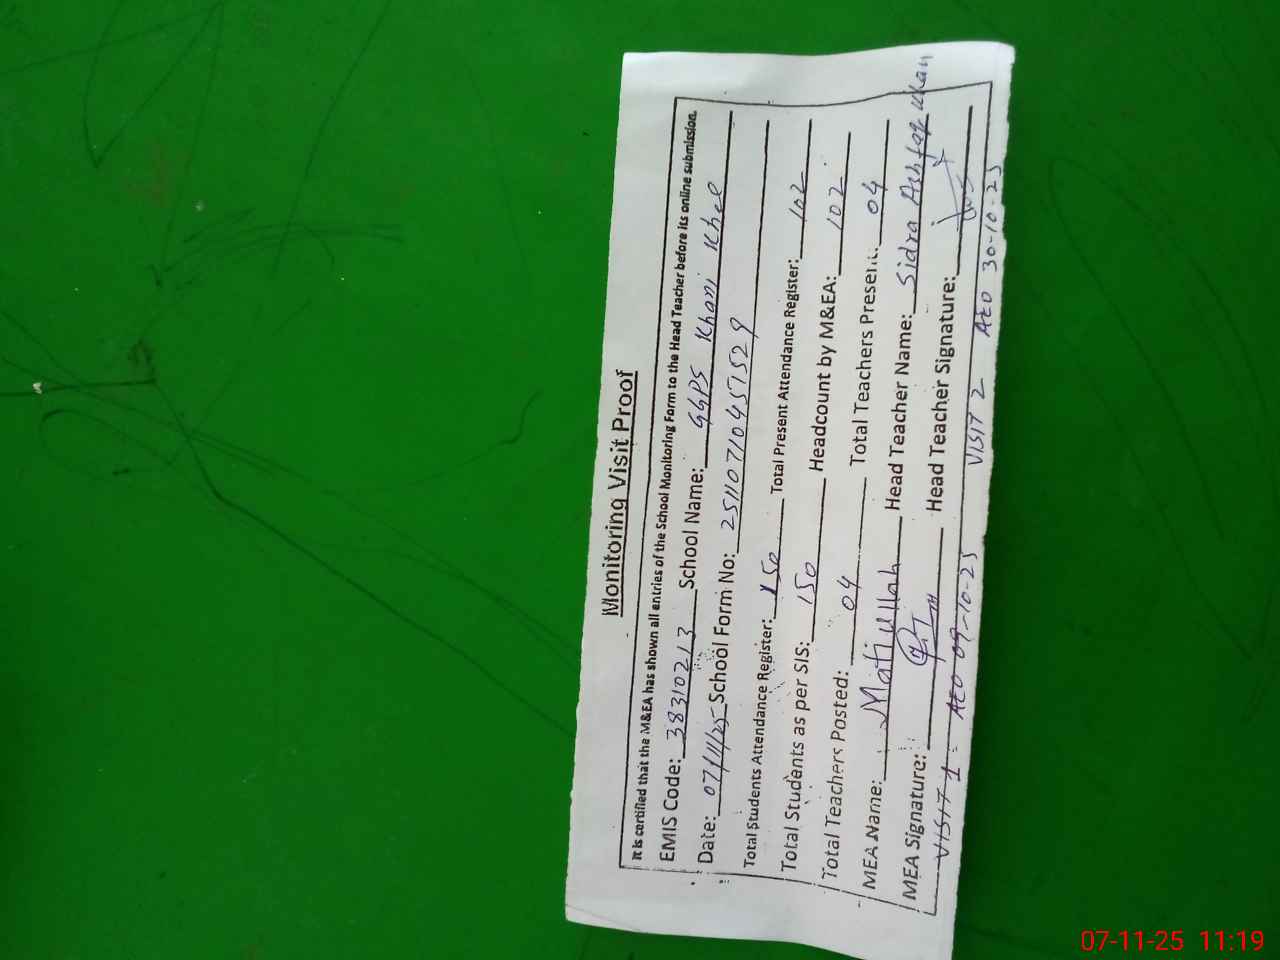 Monitoring Visit Proof
It is certified that the M&EA has shown all entries of the School Monitoring Form to the Head Teacher before its online submission.
EMIS Code: 38310213 School Name: GGPS Khani Khel
Date: 07/11/25 School Form No: 251107104571529
Total Students Attendance Register: 150 Total Present Attendance Register: 102
Total Students as per SIS: 150 Headcount by M&EA: 102
Total Teachers Posted: 04 Total Teachers Present: 04
MEA Name: Matiullah Head Teacher Name: Sidra Ashfaq Khan
MEA Signature: Head Teacher Signature:
VISIT 1 AEO 09-10-25 VISIT 2 AEO 30-10-25
07-11-25 11:19